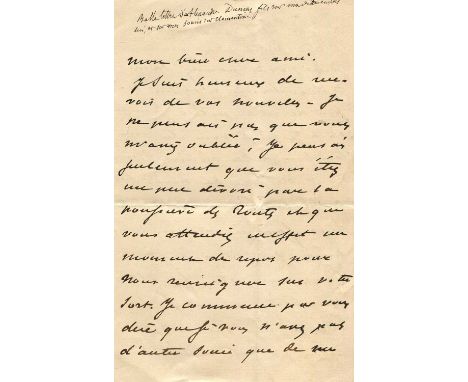 Belle lettre d'Alexandre Dumas fils sur
et sur mes
mon bien cher ami.
Je suis heureux de rece-
voir de vos nouvelles. Je
ne pensais pas que vous
m'ayez oublié; je pensais
seulement que vous étiez
un peu dévoré par la
poussière des routes et que
vous attendiez un
moment de repos pour
nous renseigner sur votre
sort. Je commence par vous
dire que si vous n'avez pas
d'autre souci que de me